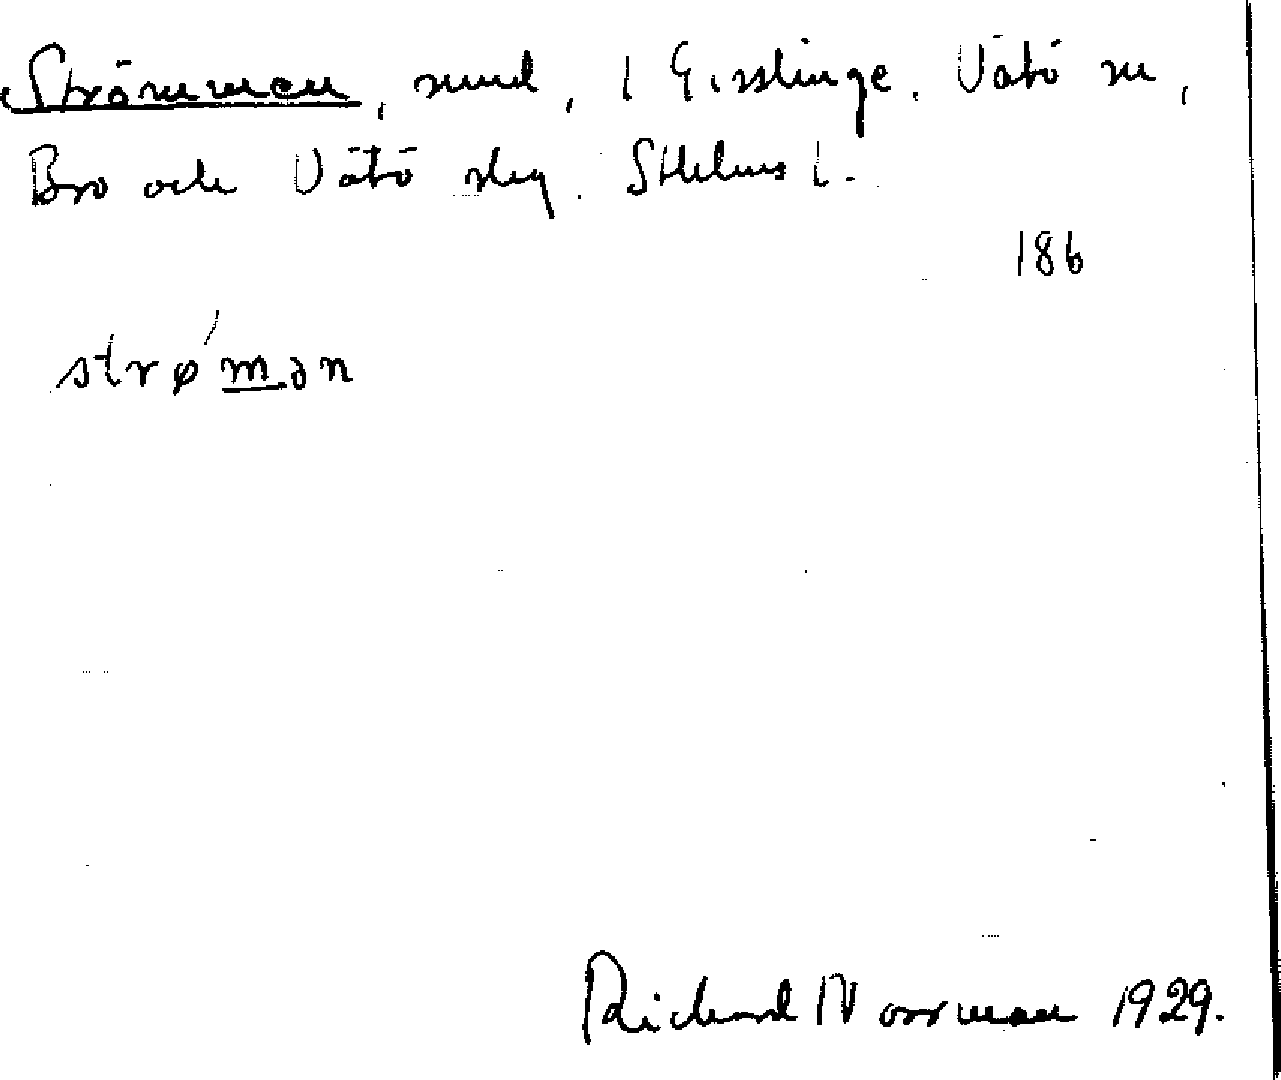 Strömmen, sund, i Gisslinge. Vätö sn,
Bro och Vätö skg. Sthlms l.
186
strø´mən
Richard Norrman 1929.